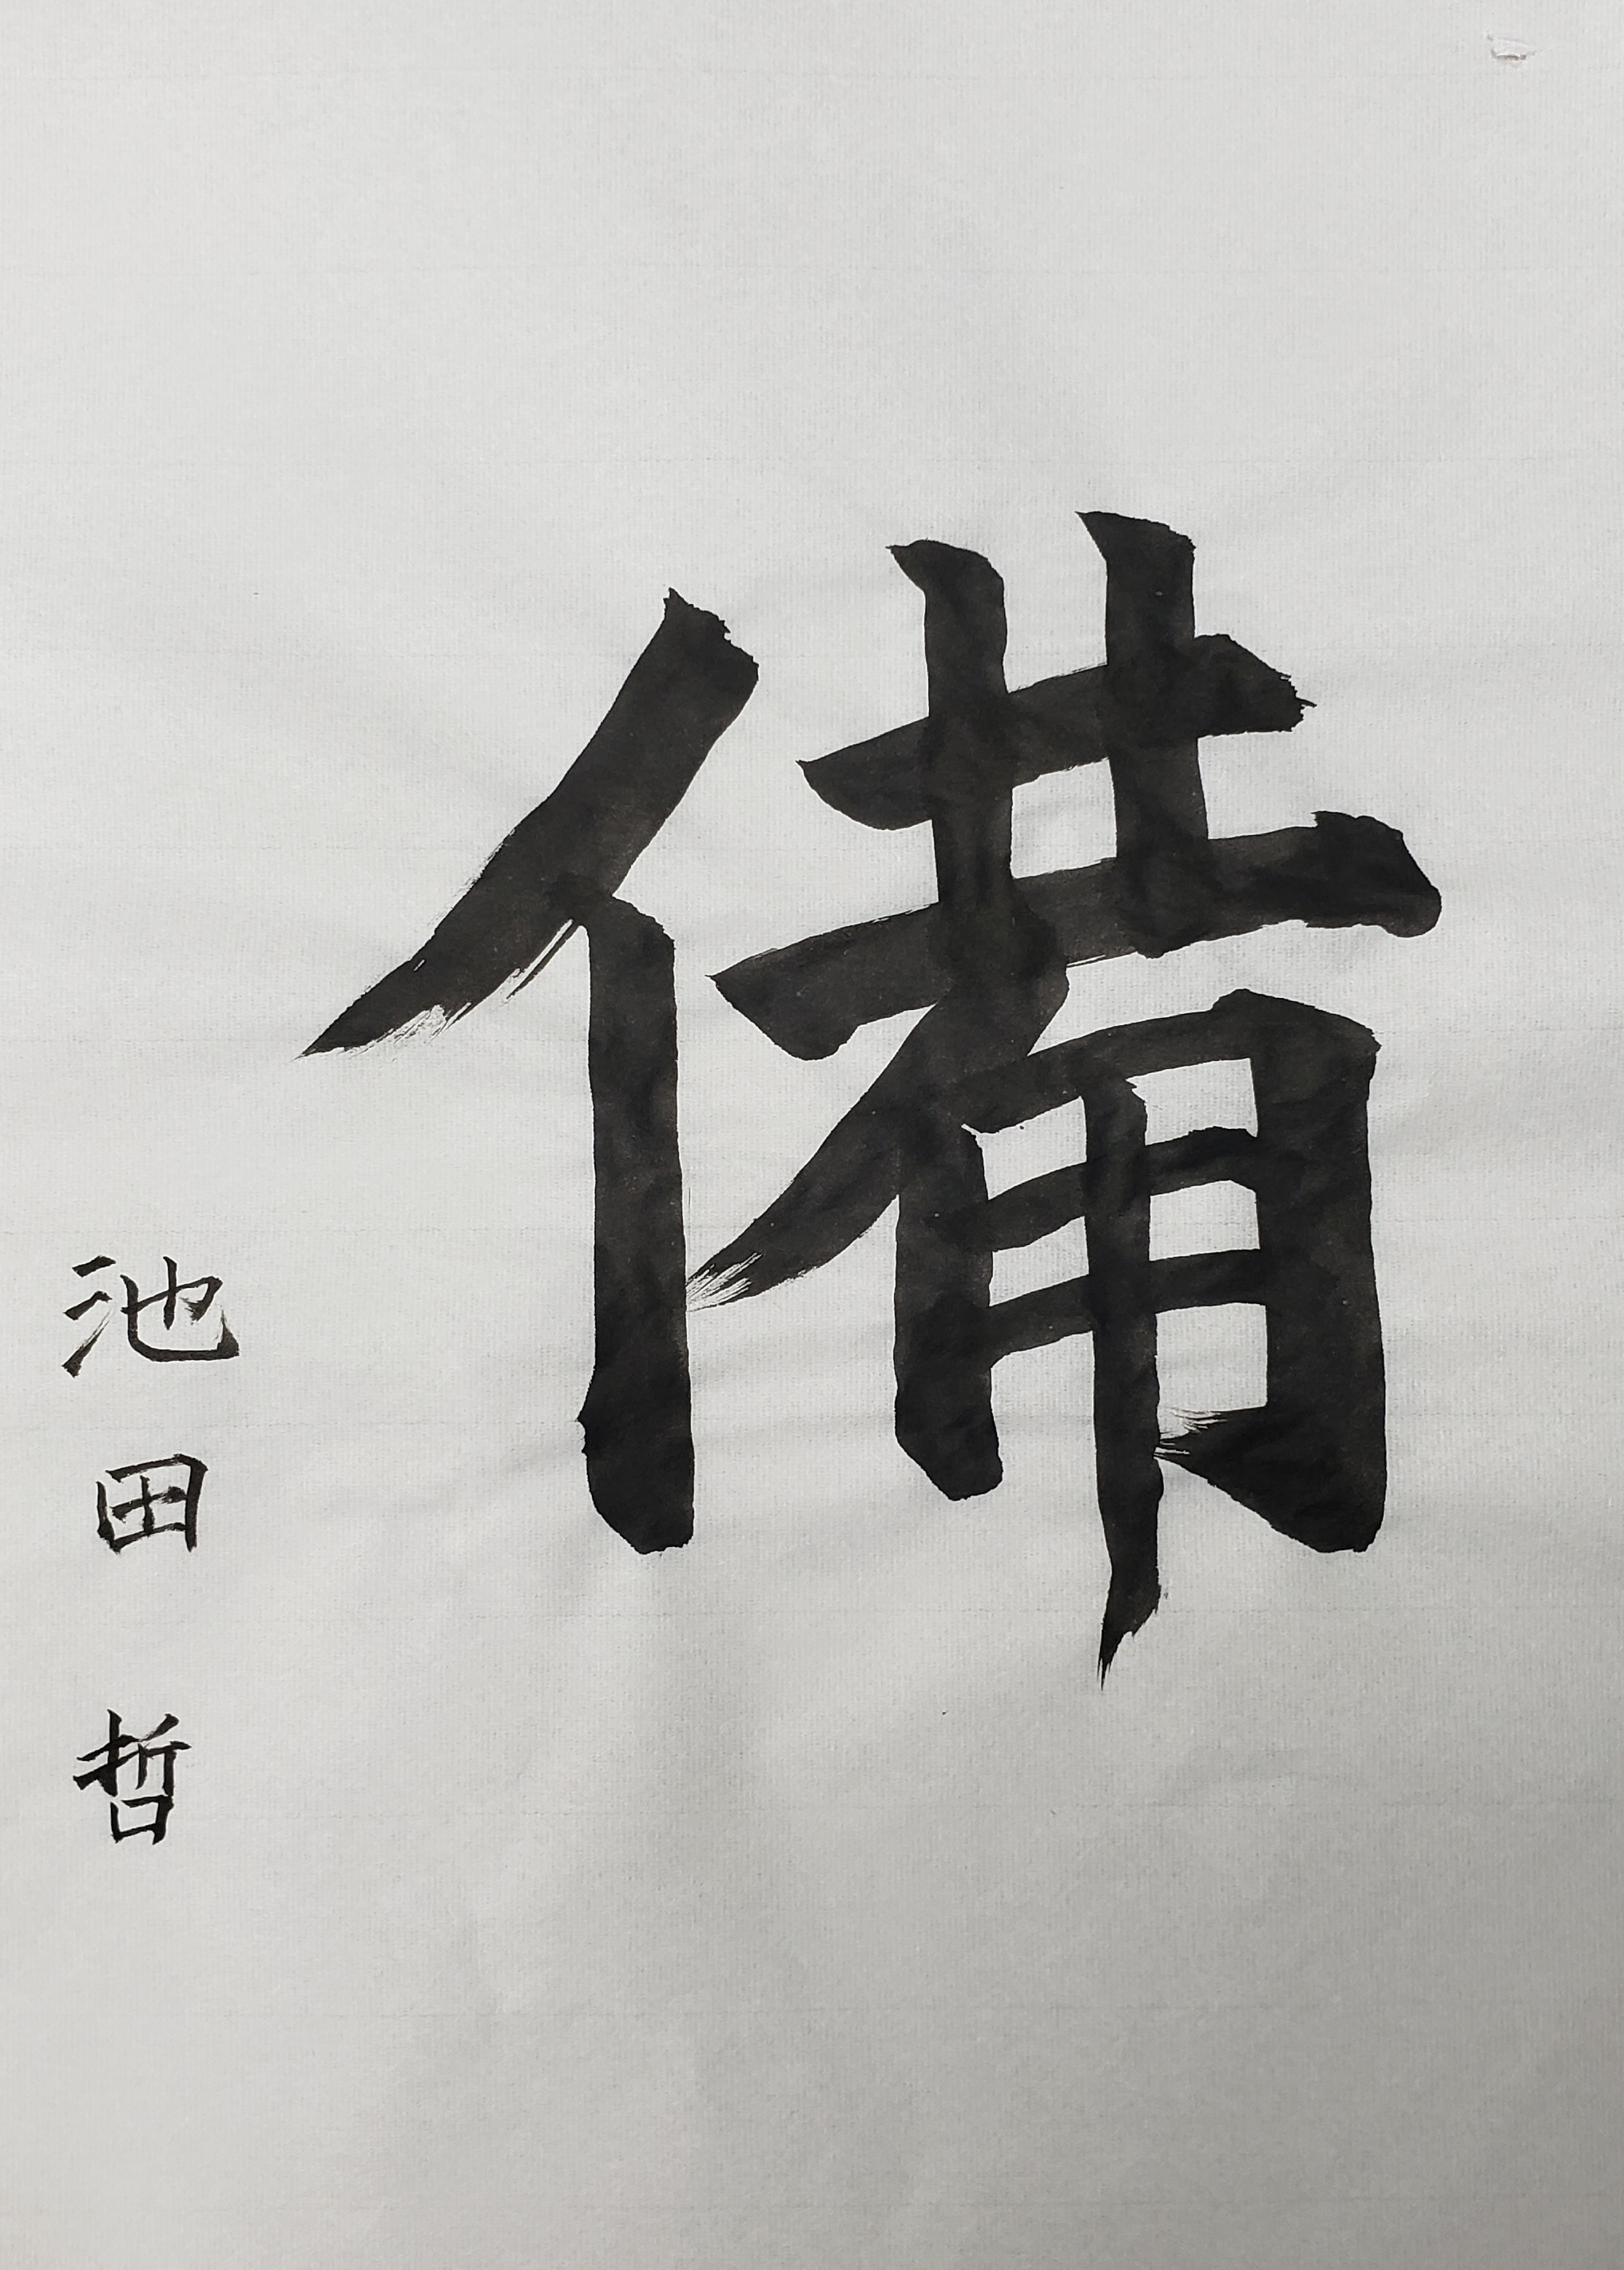 備
池田哲